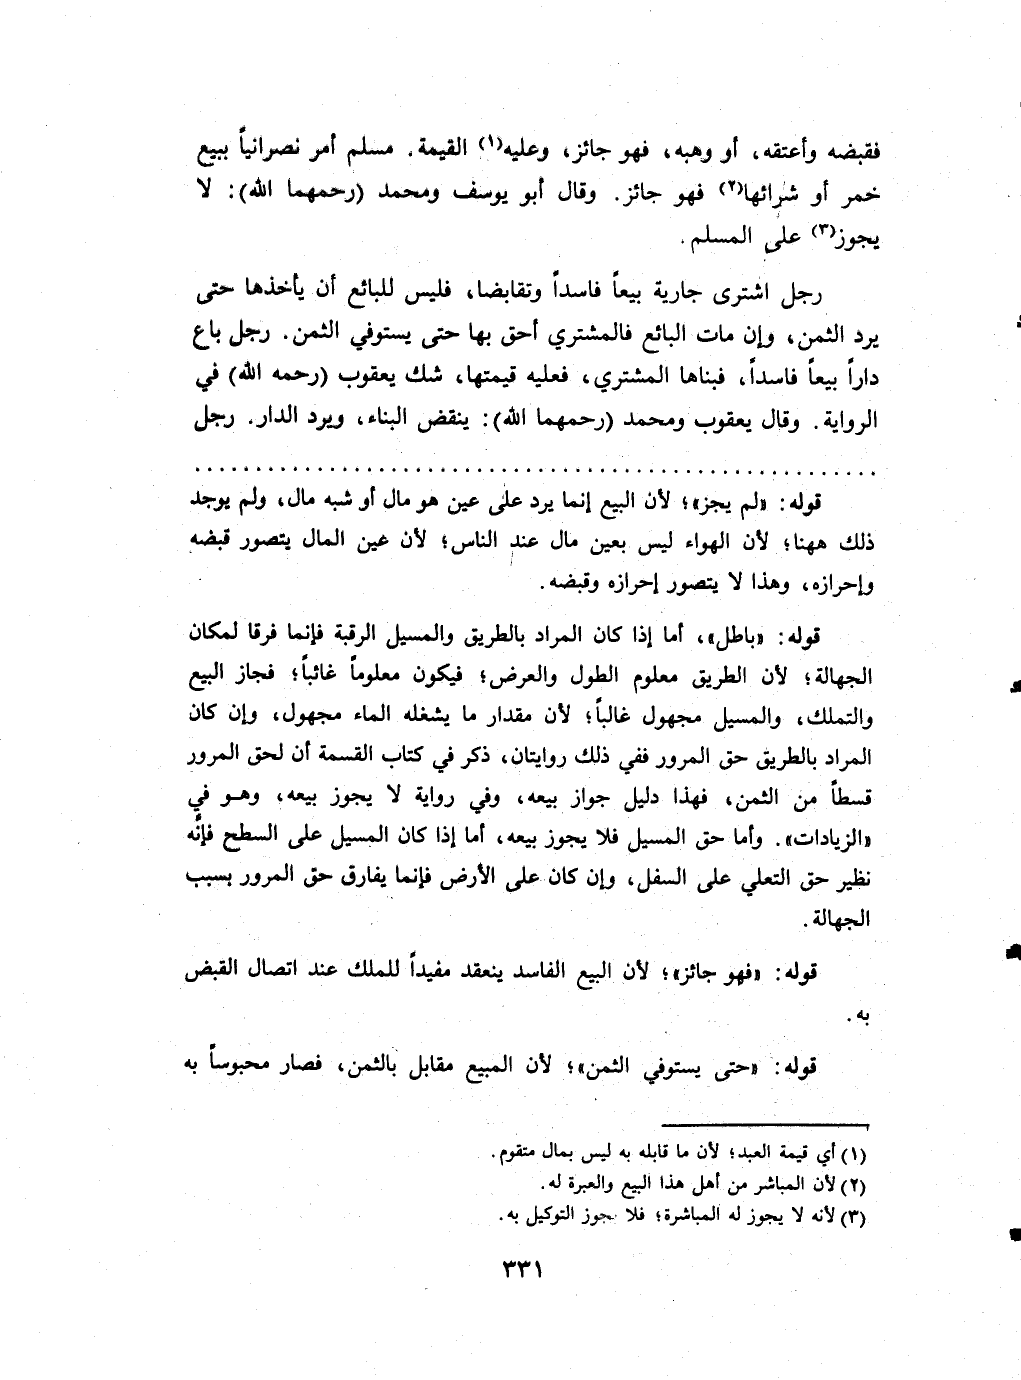 فقبضه وأعتقه، أو وهبه، فهو جائز، وعليه(١) القيمة. مسلم أمر نصرانياً ببيع
خمر أو شرائها(٢) فهو جائز. وقال أبو يوسف ومحمد (رحمهما الله): لا
يجوز(٣) على المسلم.
رجل اشترى جارية بيعاً فاسداً وتقابضا، فليس للبائع أن يأخذها حتى
يرد الثمن، وإن مات البائع فالمشتري أحق بها حتى يستوفي الثمن. رجل باع
داراً بيعاً فاسداً، فبناها المشتري، فعليه قيمتها، شك يعقوب (رحمه الله) في
الرواية. وقال يعقوب ومحمد (رحمهما الله): ينقض البناء، ويرد الدار. رجل
قوله: «لم يجز»؛ لأن البيع إنما يرد على عين هو مال أو شبه مال، ولم يوجد
ذلك ههنا؛ لأن الهواء ليس بعين مال عند الناس؛ لأن عين المال يتصور قبضه
وإحرازه، وهذا لا يتصور إحرازه وقبضه.
قوله: «باطل»، أما إذا كان المراد بالطريق والمسيل الرقبة فإنما فرقا لمكان
الجهالة؛ لأن الطريق معلوم الطول والعرض؛ فيكون معلوماً غائباً؛ فجاز البيع
والتملك، والمسيل مجهول غالباً؛ لأن مقدار ما يشغله الماء مجهول، وإن كان
المراد بالطريق حق المرور ففي ذلك روايتان، ذكر في كتاب القسمة أن لحق المرور
قسطاً من الثمن، فهذا دليل جواز بيعه، وفي رواية لا يجوز بيعه، وهـو في
«الزيادات». وأما حق المسيل فلا يجوز بيعه، أما إذا كان المسيل على السطح فإنَّه
نظير حق التعلي على السفل، وإن كان على الأرض فإنما يفارق حق المرور بسبب
الجهالة.
قوله: «فهو جائز»؛ لأن البيع الفاسد ينعقد مفيداً للملك عند اتصال القبض
به.
قوله: «حتى يستوفي الثمن»؛ لأن المبيع مقابل بالثمن، فصار محبوساً به
(١) أي قيمة العبد؛ لأن ما قابله به ليس بمال متقوم.
(٢) لأن المباشر من أهل هذا البيع والعبرة له.
(٣) لأنه لا يجوز له المباشرة؛ فلا يجوز التوكيل به.
٣٣١